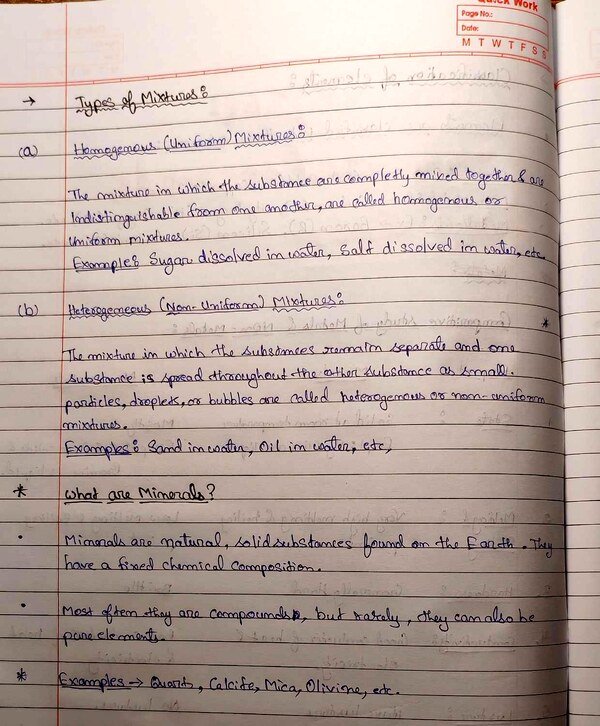 Quick Work
Page No.:
Date:
M T W T F S S
→ Types of Mixtures:
(a) Homogenous (Uniform) Mixtures:
The mixture in which the substance are completly mixed together & are
Indistinguishable from one another, are called homogenous or
uniform mixtures.
Example: Sugar dissolved in water, Salt dissolved in water, etc.
(b) Heterogeneous (Non-Uniform) Mixtures:
The mixture in which the subsances remain separate and one
substance is spread throughout the other substance as small
particles, droplets, or bubbles are called heterogenous or non-uniform
mixtures.
Examples: Sand in water, Oil in water, etc,
* What are Minerals?
• Minerals are natural, solid substances found on the Earth. They
have a fixed chemical composition.
• Most often they are compounds, but rarely, they can also be
pure elements.
* Examples → Quartz, Calcite, Mica, Olivine, etc.